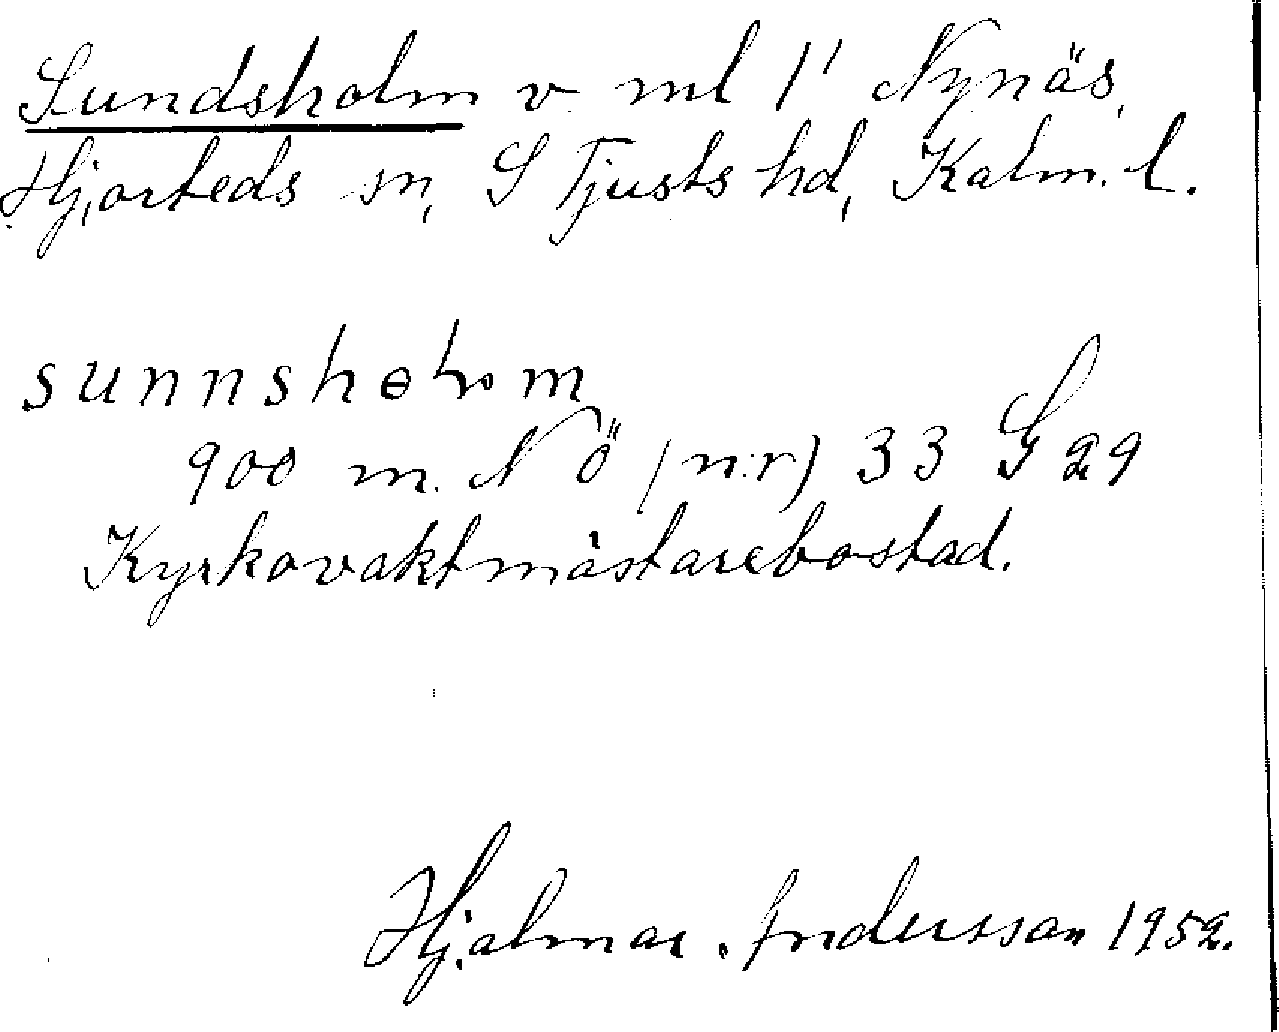 Sundsholm v ml 1' Nynäs,
Hjorteds sn, S Tjusts hd, Kalm. l.
sunnshɵɫm
900 m. NÖ (n:r) 33 G 29
Kyrkovaktmästarebostad.
Hjalmar Andersson 1952.